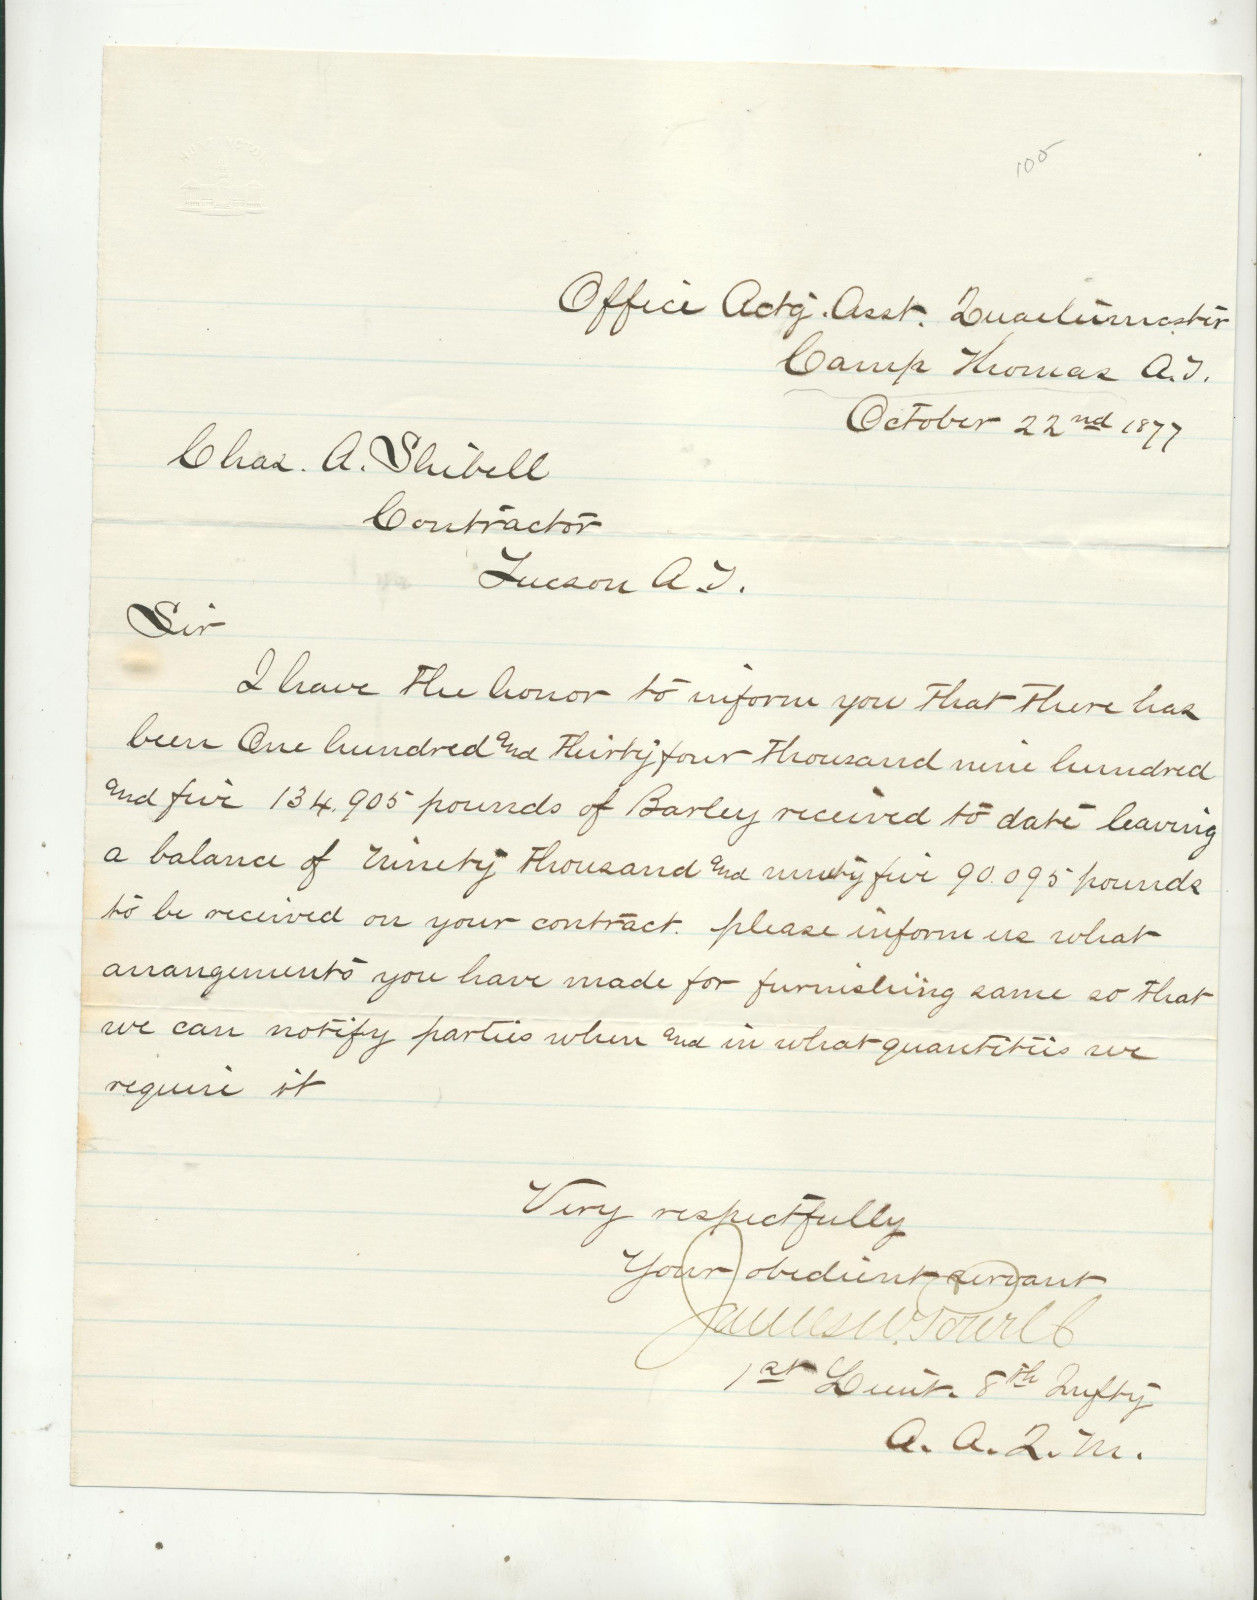 105
Office Actg. Asst. Quartermaster
Camp Thomas A.T.
October 22nd 1877
Chas. A. Shibell
Contractor
Tucson A.T.
Sir
I have the honor to inform you that there has
been One hundred and thirty four thousand nine hundred
and five 134.905 pounds of Barley received to date leaving
a balance of ninety thousand and ninety five 90.095 pounds
to be received on your contract. please inform us what
arrangements you have made for furnishing same so that
we can notify parties when and in what quantities we
require it
Very respectfully
Your obedient servant
James W.
1st Lieut. 8th Infty
A. A. Q. M.